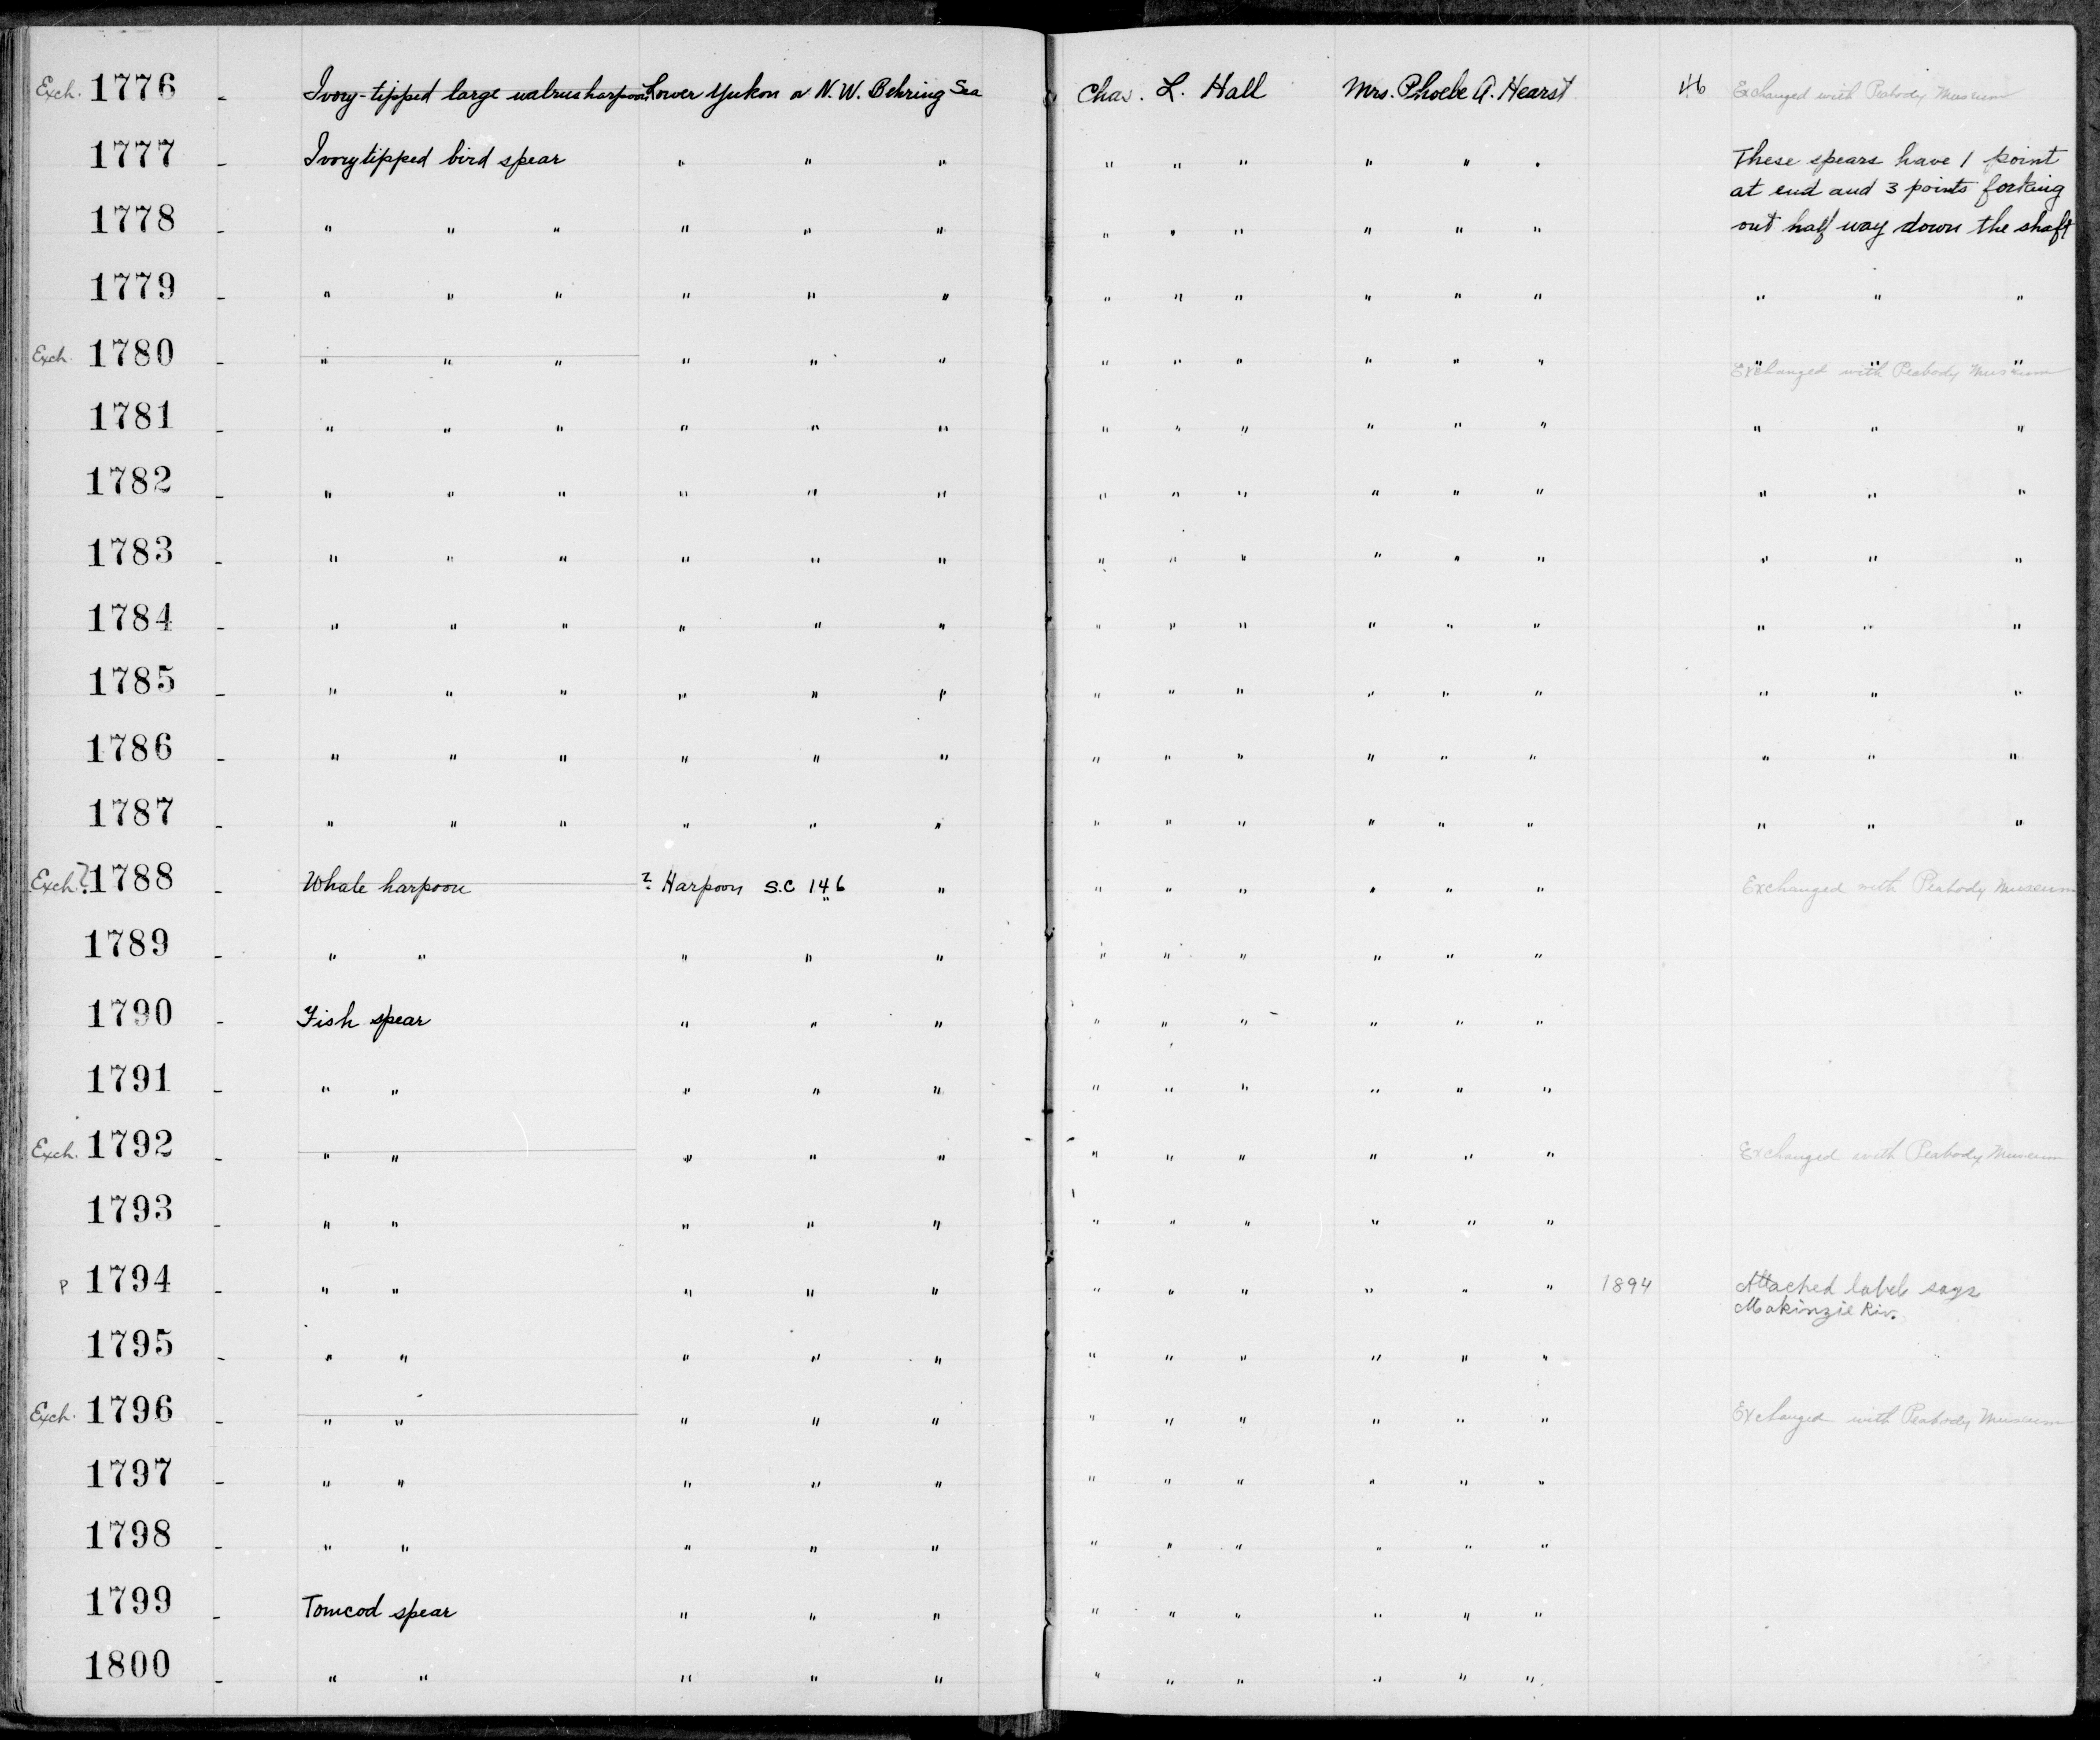 Exch. 1776 - Ivory-tipped large walrus harpoon Lower Yukon or N.W. Behring Sea Chas. L. Hall Mrs. Phoebe A. Hearst Exchanged with Peabody Museum
1777 - Ivory tipped bird spear " " " " " " " " " These spears have 1 point
at end and 3 points forking
1778 - " " " " " " " " " " " " out half way down the shaft
1779 - " " " " " " " " " " " " " " "
Exch. 1780 - " " " " " " " " " " " " " " "
Exchanged with Peabody Museum
1781 - " " " " " " " " " " " " " " "
1782 - " " " " " " " " " " " " " " "
1783 - " " " " " " " " " " " " " " "
1784 - " " " " " " " " " " " " " " "
1785 - " " " " " " " " " " " " " " "
1786 - " " " " " " " " " " " " " " "
1787 - " " " " " " " " " " " " " " "
Exch.? 1788 - Whale harpoon ? Harpoon S.C 146 " " " " " " " " Exchanged with Peabody Museum
1789 - " " " " " " " " " " "
1790 - Fish spear " " " " " " " " "
1791 - " " " " " " " " " " "
Exch. 1792 - " " " " " " " " " " " Exchanged with Peabody Museum
1793 - " " " " " " " " " " "
P 1794 - " " " " " " " " " " " 1894 Attached label says
Makinzie Riv.
1795 - " " " " " " " " " " "
Exch. 1796 - " " " " " " " " " " " Exchanged with Peabody Museum
1797 - " " " " " " " " " " "
1798 - " " " " " " " " " " "
1799 - Tomcod spear " " " " " " " " "
1800 - " " " " " " " " " " "